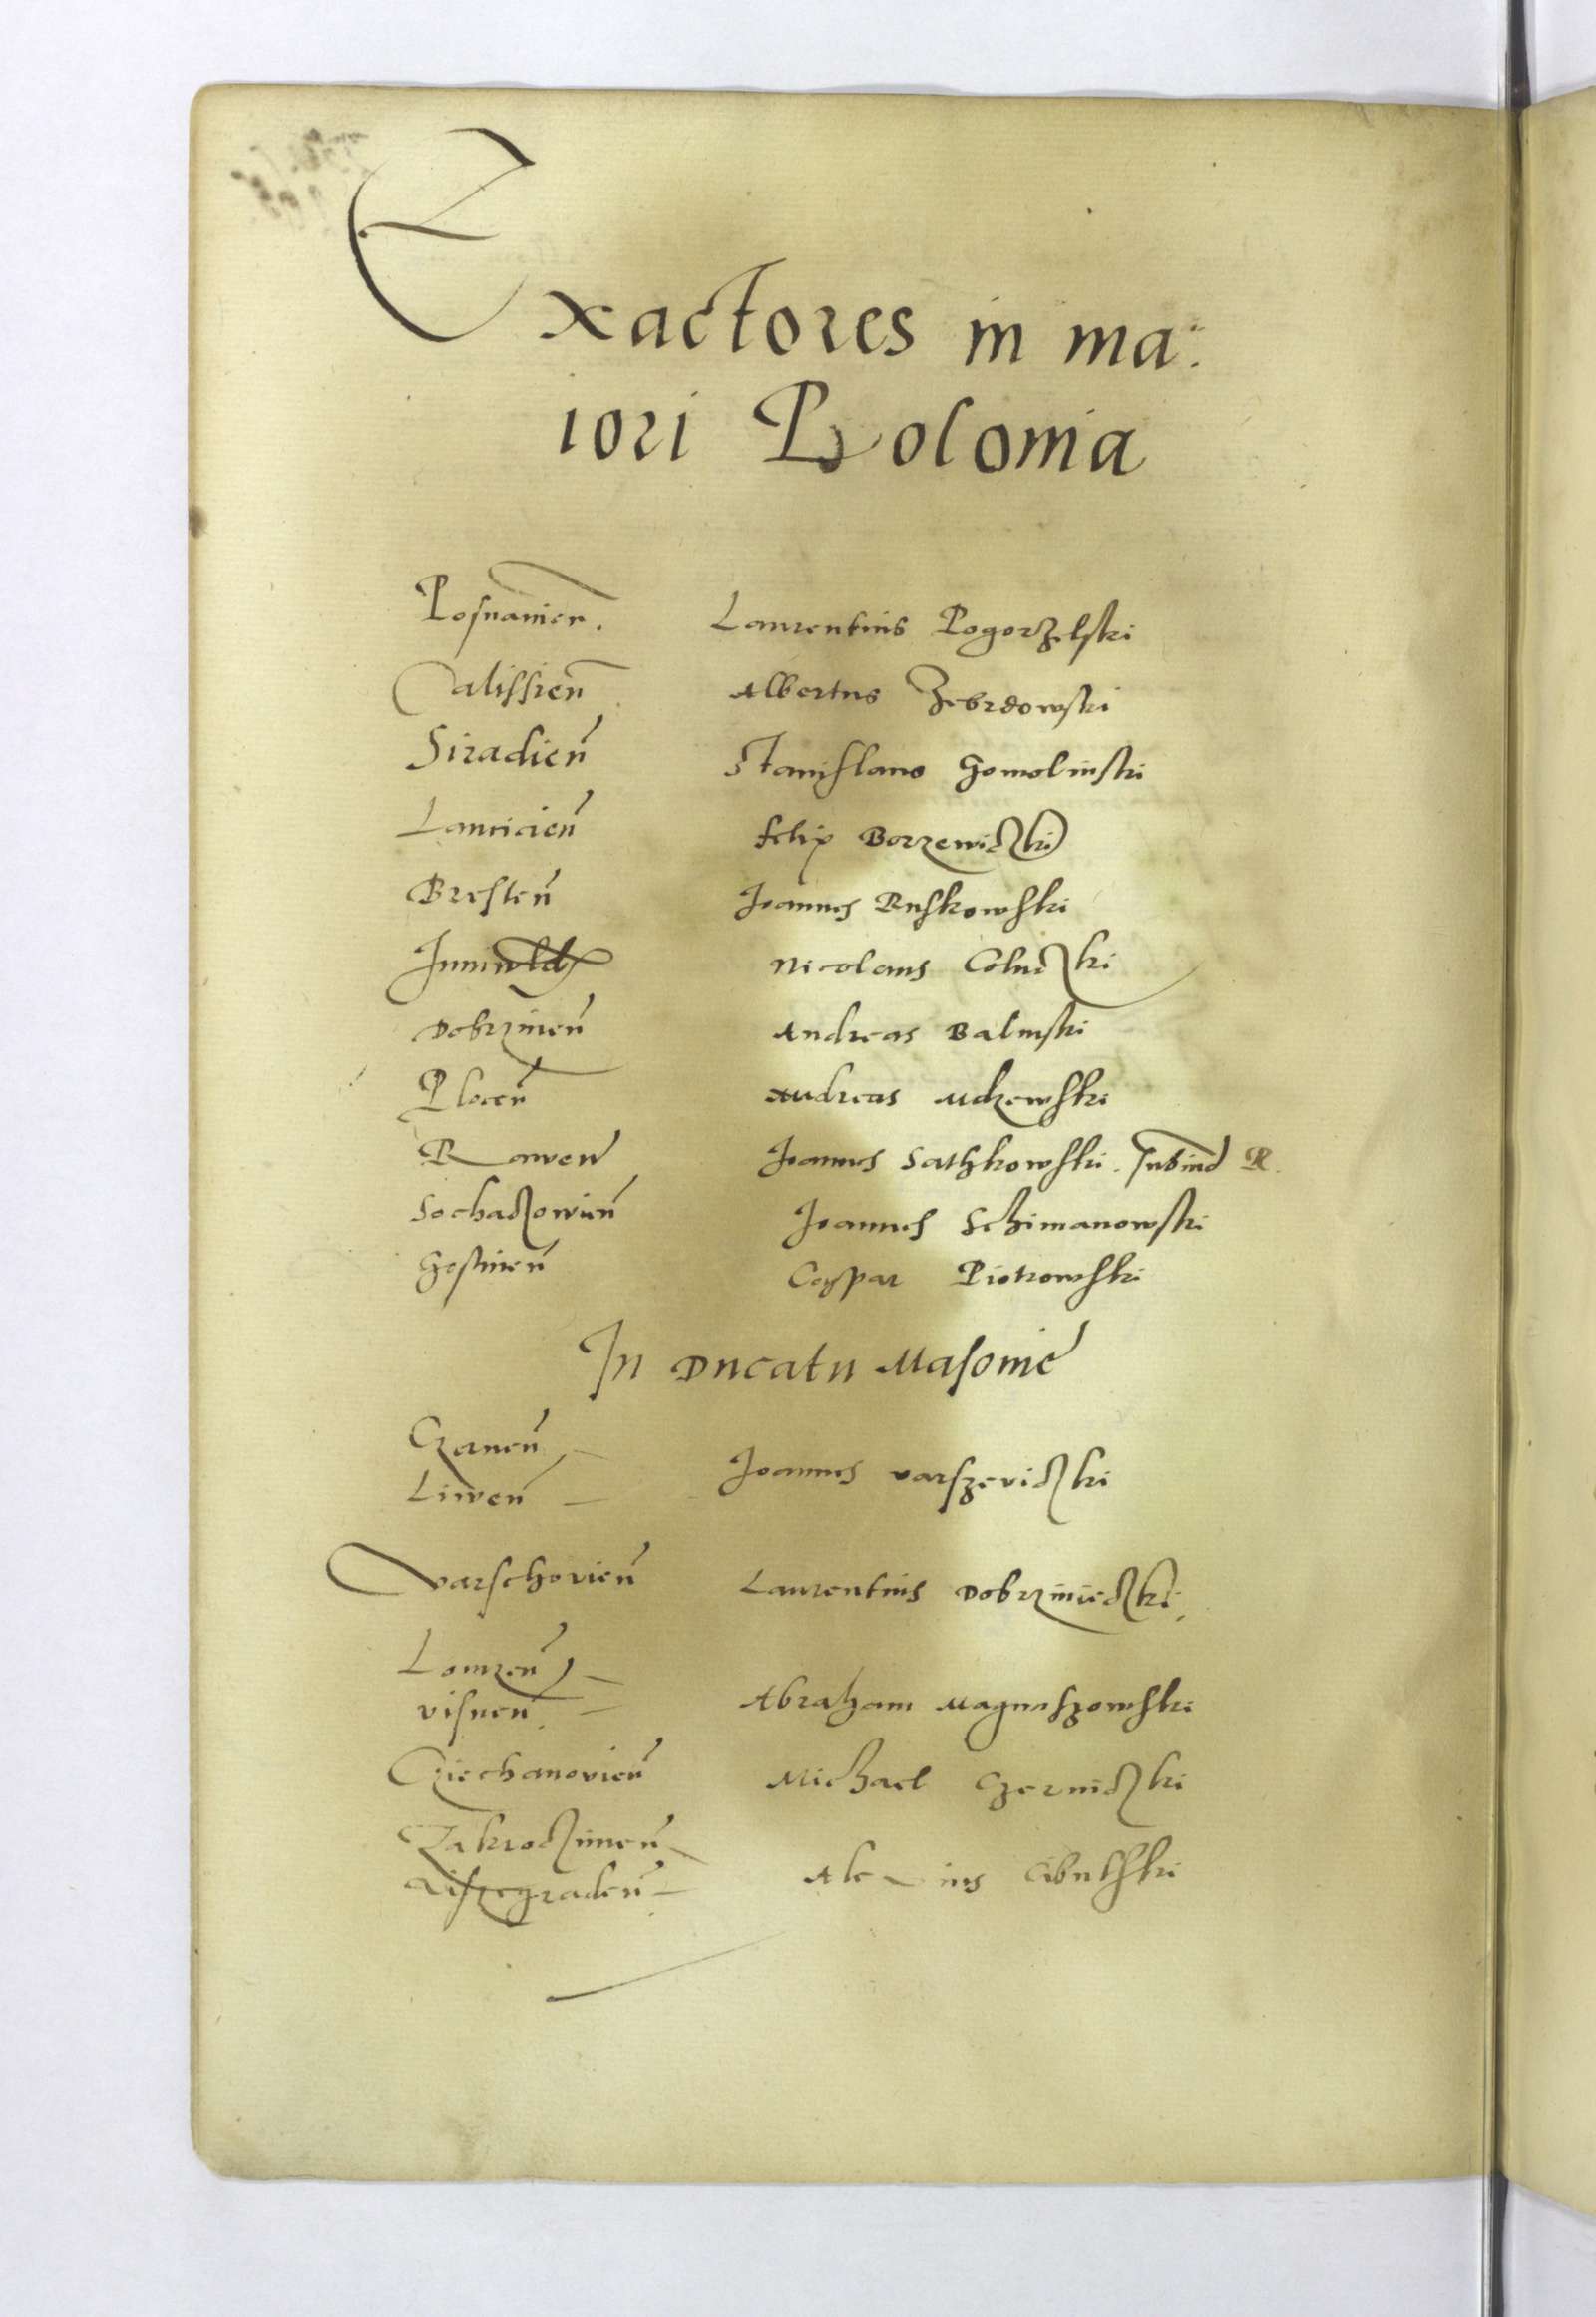 Exactores in ma:
iori Polonia
Posnanien. Laurentius Pogorzelski
Calissien Albertus Zebrdowski
Siradien Stanislaus Gomolinski
Lancicien Felix Borzewiczki
Bresten Joannes Ruskowski
Nicolaus Coluczki
Dobrzinen Andreas Balinski
Plocen Andreas Mdzewski
Rawen Joannes Sathkowski. R.
Sochaczowien Joannes Schimanowski
Gostinen Caspar Piotrowski
In Ducatu Masonie
Czernen
Joannes Varszeviczki
Liwen
Varschovien Laurentius Dobrzinieczki
Lomzen
Visnen Abraham Magnuszowski
Cziechanovien Michael Czerniczki
Zakroczimen
Alexius Cibulski
Viszegraden